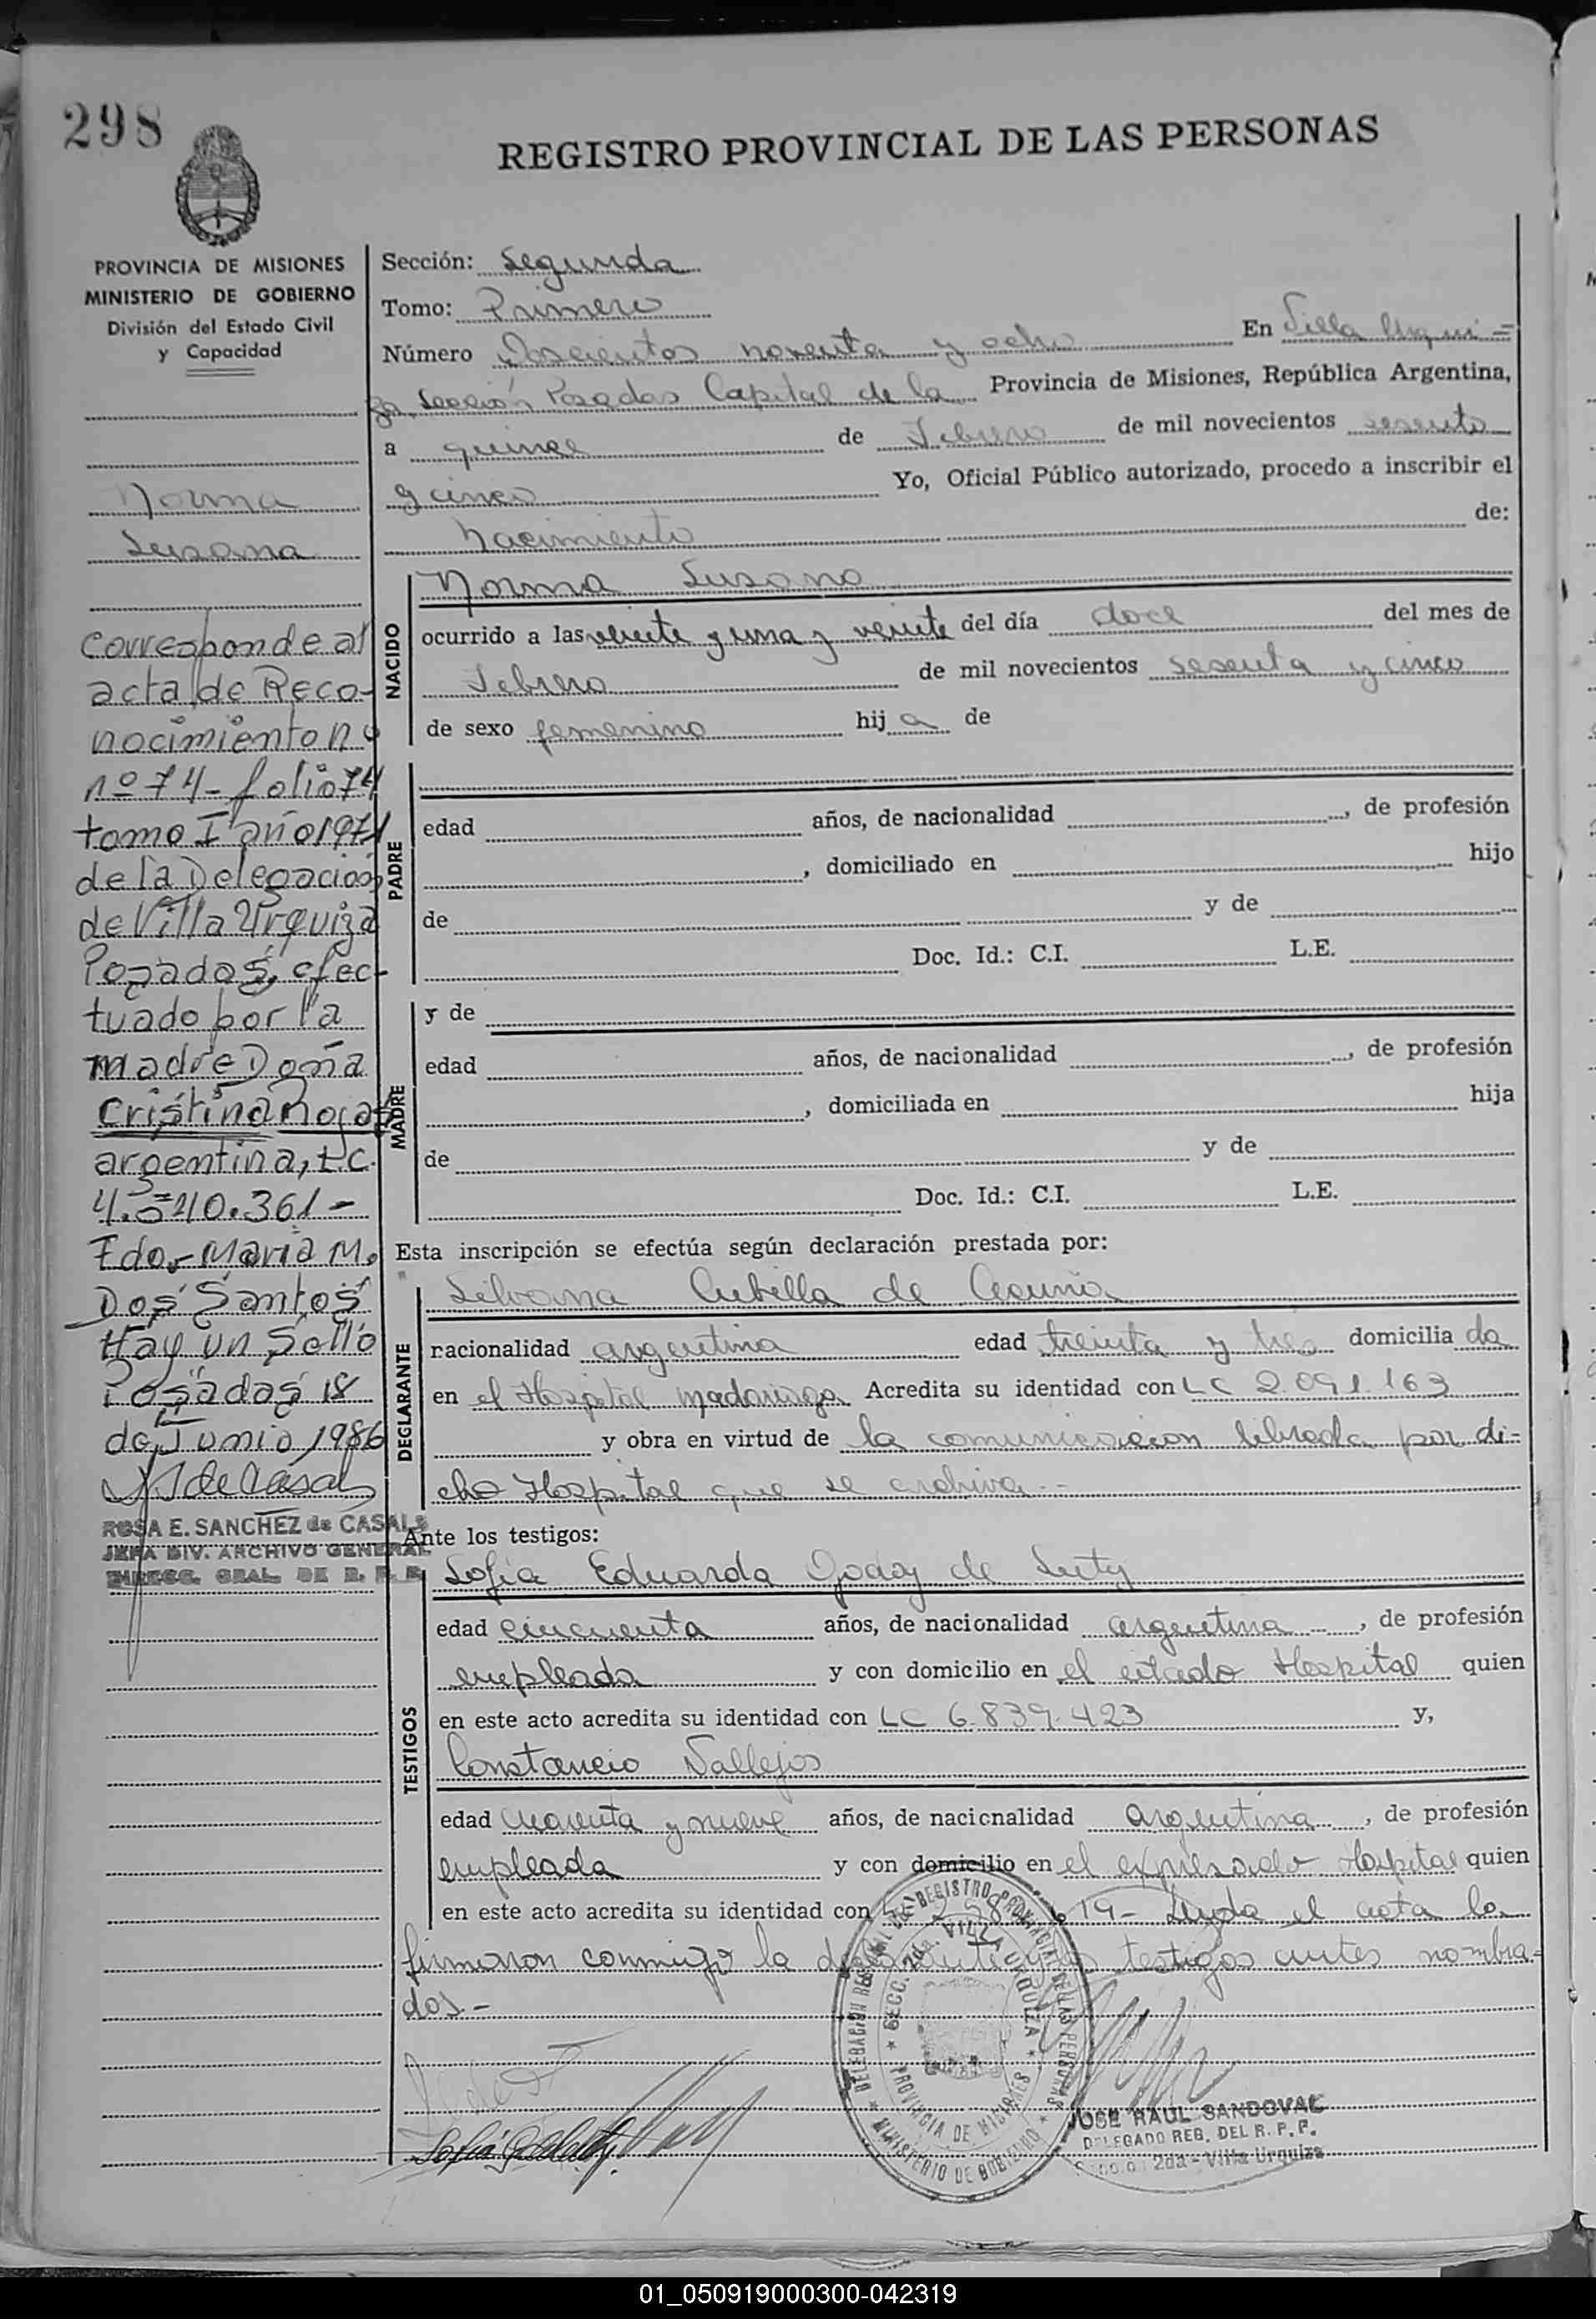 298
REGISTRO PROVINCIAL DE LAS PERSONAS
PROVINCIA DE MISIONES
MINISTERIO DE GOBIERNO
División del Estado Civil
y Capacidad
Norma
Susana
Corresponde al
acta de Reco-
nocimiento
nº 74 - folio 74
tomo I año 1971
de la Delegación
de Villa Urquiza
Posadas, efec-
tuado por la
madre Doña
Cristina Rojas
argentina, L.C.
4.540.361 -
Fdo. Maria M.
Dos Santos
Hay un Sello
Posadas 18
de Junio 1986
ROSA E. SANCHEZ de CASALS
JEFA DIV. ARCHIVO GENERAL
DIRECC. GRAL. DE R. P. P.
Sección: Segunda
Tomo: Primero
Número Doscientos noventa y ocho En Villa Urqui=
za Sección Posadas Capital de la Provincia de Misiones, República Argentina,
a quince de Febrero de mil novecientos sesenta
y cinco Yo, Oficial Público autorizado, procedo a inscribir el
Nacimiento de:
NACIDO
Norma Susana
ocurrido a las veinte y una y veinte del día doce del mes de
Febrero de mil novecientos sesenta y cinco
de sexo femenino hija de
PADRE
edad años, de nacionalidad , de profesión
, domiciliado en hijo
de y de
Doc. Id.: C.I. L.E.
MADRE
y de
edad años, de nacionalidad , de profesión
, domiciliada en hija
de y de
Doc. Id.: C.I. L.E.
Esta inscripción se efectúa según declaración prestada por:
DECLARANTE
Silvana Cubilla de Acuña
racionalidad argentina edad treinta y tres domiciliada
en el Hospital Madariaga Acredita su identidad con LC 2.091.163
y obra en virtud de la comunicacion librada por di=
cho Hospital que se archiva.-
Ante los testigos:
TESTIGOS
Sofia Eduarda Godoy de
edad cincuenta años, de nacionalidad argentina , de profesión
empleada y con domicilio en el citado Hospital quien
en este acto acredita su identidad con LC 6.839.423 y,
Constancio Vallejos
edad cuarenta y nueve años, de nacionalidad argentina , de profesión
empleada y con domicilio en el expresado Hospital quien
en este acto acredita su identidad con 19- Leyda el acta la
firmaron conmigo la declarante y los testigos antes nombra=
dos.-
DELEGACION REGIONAL DEL REGISTRO PROVINCIAL DE LAS PERSONAS
SECC. 2da. VILLA URQUIZA
PROVINCIA DE MISIONES
MINISTERIO DE GOBIERNO
JOSE RAUL SANDOVAL
DELEGADO REG. DEL R. P. P.
2da - Villa Urquiza
01_050919000300-042319